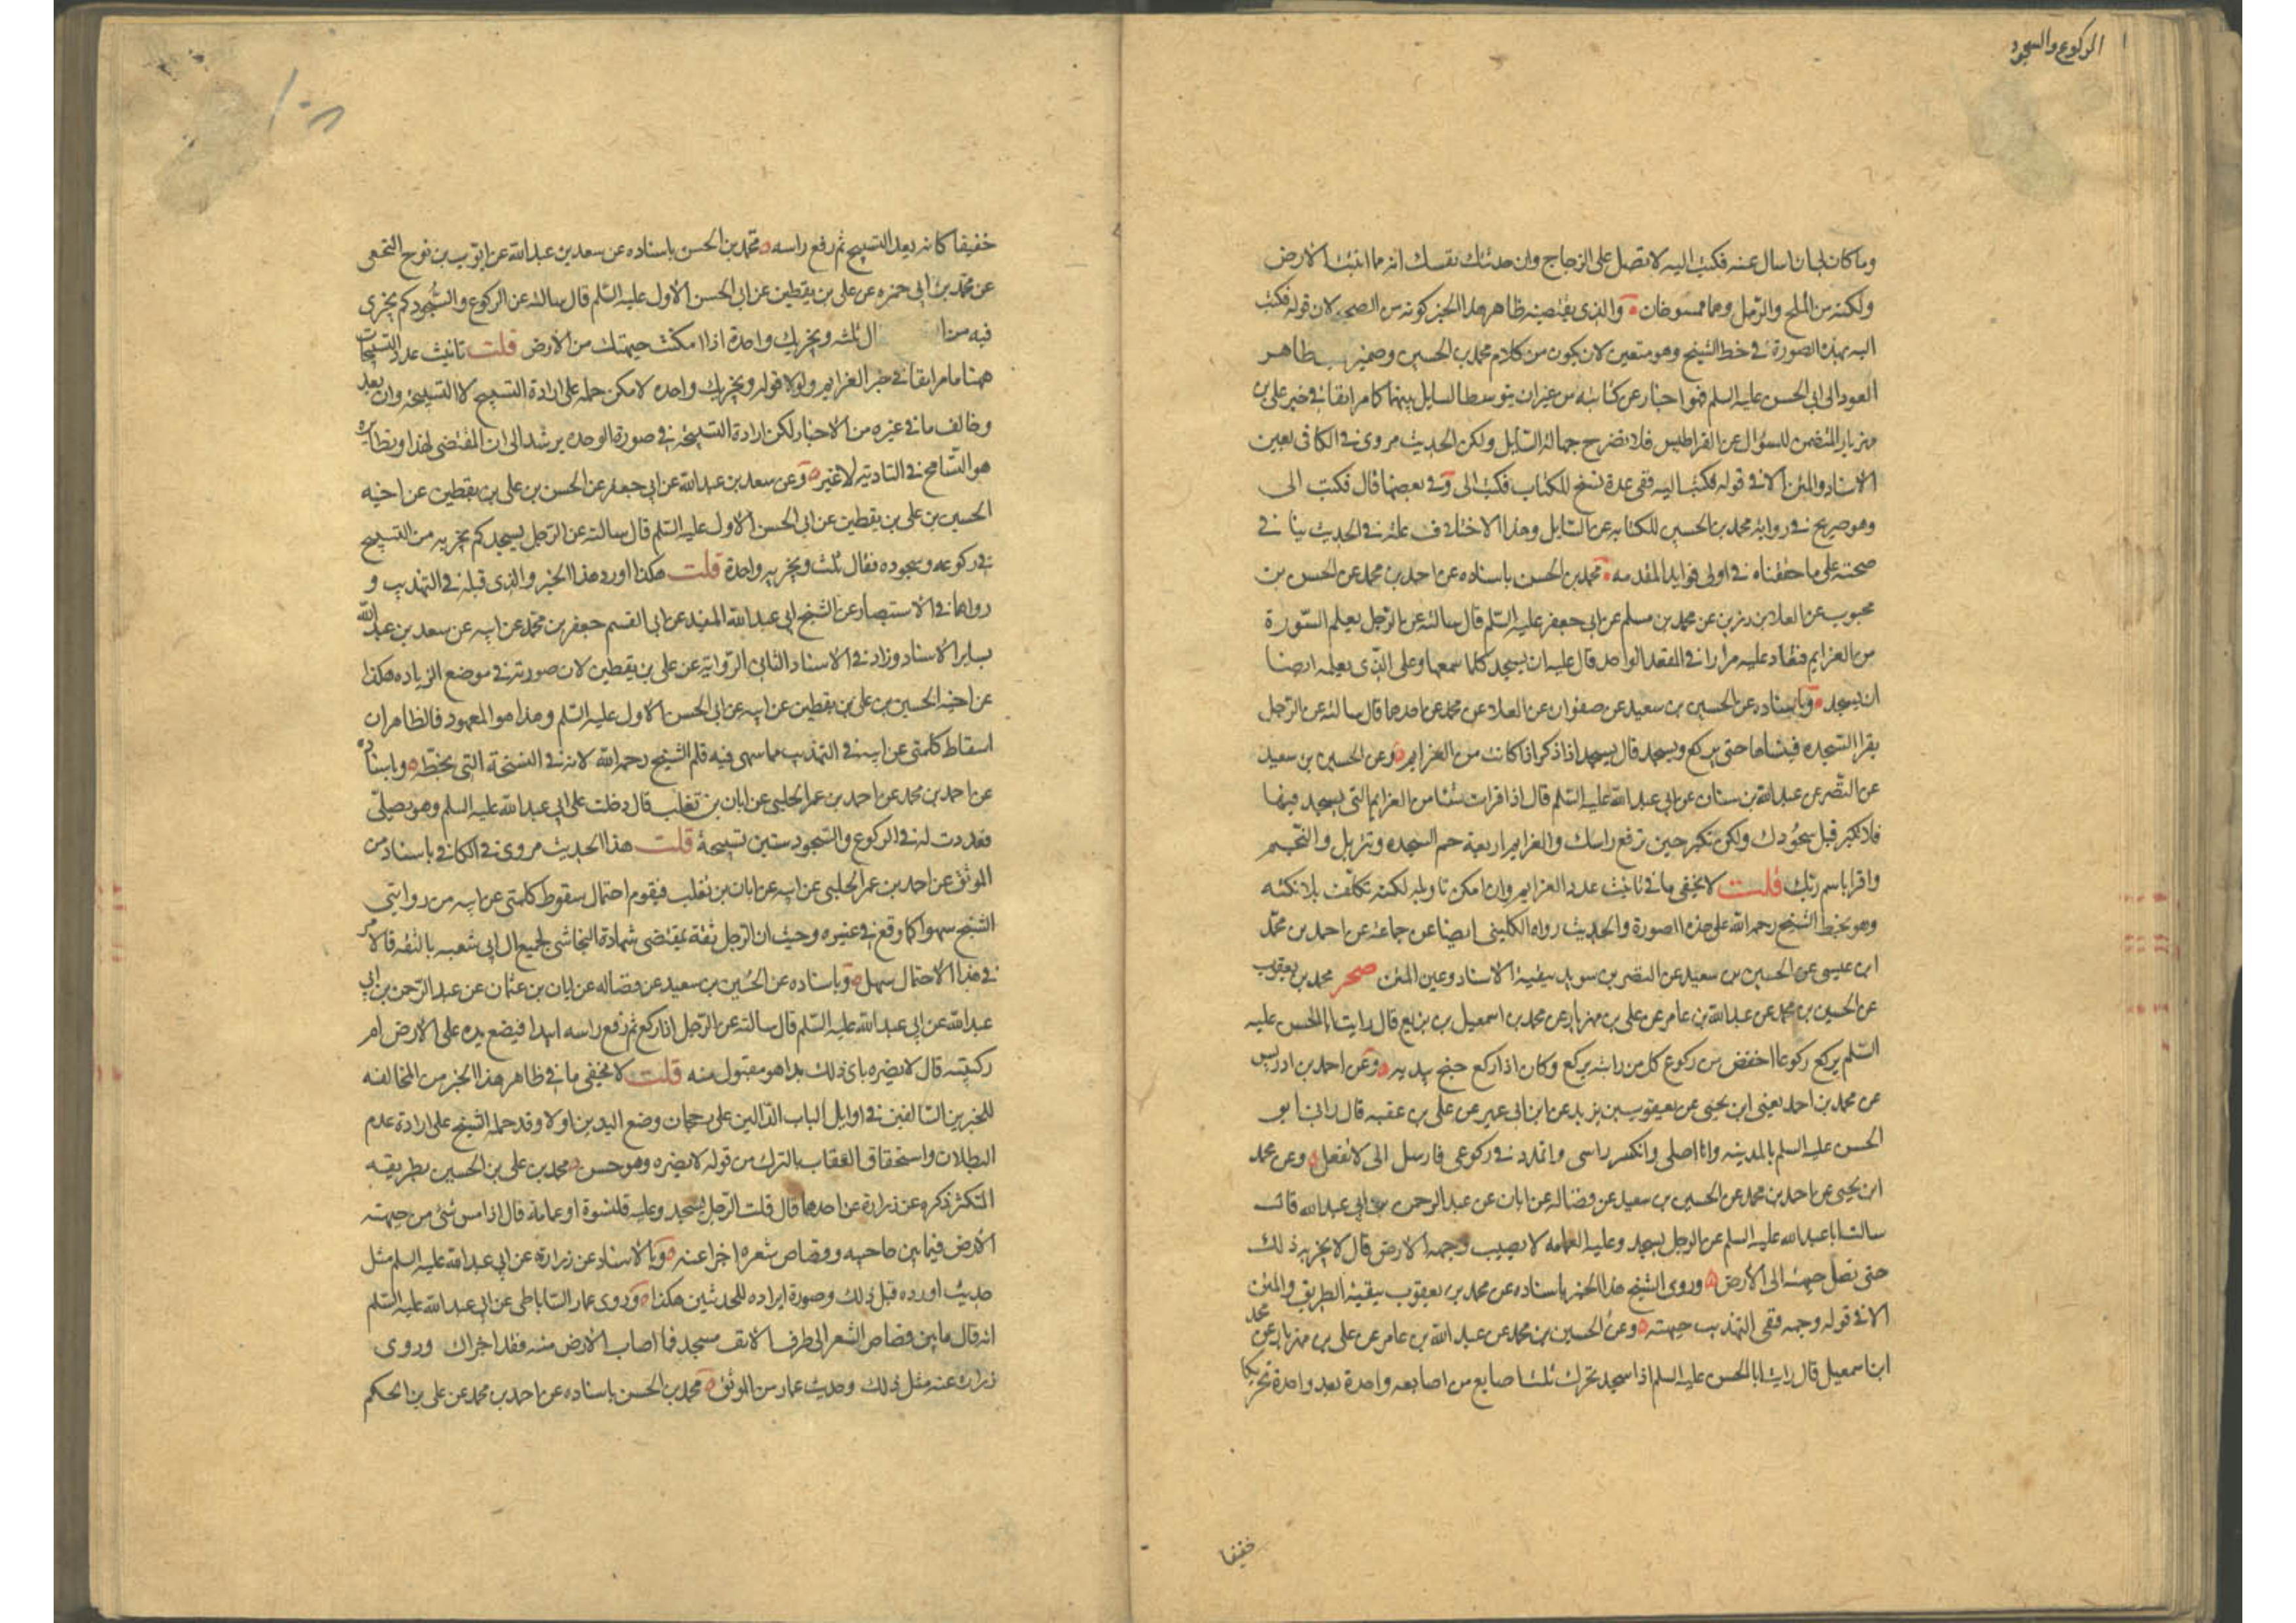 الركوع والسجود
وما كان لي ان اسال عنه فكتب اليه لا تصل على الزجاج وان حدثتك نفسك انه مما انبتت الارض
ولكنه من الملح والرمل وهما ممسوخان والذي يقتضيه ظاهر هذا الخبر كونه من الصحيح لان قوله فكتب
اليه بهذه الصورة في خط الشيخ وهو متعين لان يكون من كلام محمد بن الحسين وضمير بظاهر
العود الى ابي الحسن عليه السلم فهو اخبار عن كتابته من غير ان يتوسط السايل بينهما كما مر انفا في خبر علي بن
مهزيار المتضمن للسؤال عن القراطيس فلا تضر ح جهالة السايل ولكن الحديث مروي في الكافي بعين
الاسناد والمتن الا في قوله فكتب اليه ففي عدة نسخ للكتاب فكتب الى وفي بعضها قال فكتب الى
وهو صريح في رواية محمد بن الحسين للكتابه عن السايل وهذا الاختلاف علة في الحديث ينافي
صحته على ما حققناه في اولى فوايد المقدمه محمد بن الحسن باسناده عن احمد بن محمد عن الحسن بن
محبوب عن العلا بن رزين عن محمد بن مسلم عن ابي جعفر عليه السلم قال سالته عن الرجل يعلم السورة
من العزايم فتعاد عليه مرارا في المقعد الواحد قال عليه ان يسجد كلما سمعها وعلى الذي يعلمه ايضا
ان يسجد وباسناده عن الحسين بن سعيد عن صفوان عن العلا عن محمد عن احدهما قال سالته عن الرجل
يقرا السجده فينساها حتى يركع ويسجد قال يسجد اذا ذكر اذا كانت من العزايم وعن الحسين بن سعيد
عن النضر عن عبد الله بن سنان عن ابي عبد الله عليه السلم قال اذا قرات شئا من العزايم التي يسجد فيها
فلا تكبر قبل سجودك ولكن تكبر حين ترفع راسك والعزايم اربعة حم السجده وتنزيل والنجم
واقرا باسم ربك قلت لا يخفى ما في تانيث عدد العزايم وان امكن تاويله لكنه تكلف بلا نكته
وهو بخط الشيخ رحمه الله على هذه الصورة والحديث رواه الكليني ايضا عن جماعة عن احمد بن محمد
ابن عيسى عن الحسين بن سعيد عن النضر بن سويد ببقية الاسناد وعين المتن صحر محمد بن يعقوب
عن الحسين بن محمد عن عبد الله بن عامر عن علي بن مهزيار عن محمد بن اسمعيل بن بزيع قال رايت ابا الحسن عليه
السلم يركع ركوعا اخفض من ركوع كل من رايته يركع وكان اذا ركع جنح بيديه وعن احمد بن ادريس
عن محمد بن احمد يعني ابن يحيى عن يعقوب بن يزيد عن ابن ابي عمير عن علي بن عقبه قال راني ابو
الحسن عليه السلم بالمدينه وانا اصلي وانكس راسي واتمدد في ركوعي فارسل الي لا تفعل وعن محمد
ابن يحيى عن احمد بن محمد عن الحسين بن سعيد عن فضاله عن ابان عن عبد الرحمن بن ابي عبد الله قال
سالت ابا عبد الله عليه السلم عن الرجل يسجد وعليه العمامه لا يصيب وجهه الارض قال لا يجزيه ذلك
حتى تصل جبهته الى الارض وروى الشيخ هذا الخبر باسناده عن محمد بن يعقوب ببقية الطريق والمتن
الا في قوله وجهه ففي التهذيب جبهته وعن الحسين بن محمد عن عبد الله بن عامر عن علي بن مهزيار عن محمد
ابن اسمعيل قال رايت ابا الحسن عليه السلم اذا سجد يحرك ثلث اصابع من اصابعه واحدة بعد واحدة تحريكا
خفيفا
خفيفا كانه يعد التسبيح ثم رفع راسه محمد بن الحسن باسناده عن سعد بن عبد الله عن ايوب بن نوح النخعي
عن محمد بن ابي حمزه عن علي بن يقطين عن ابي الحسن الاول عليه السلم قال سالته عن الركوع والسجود كم يجزي
فيه من ال ثلثه ويجزيك واحدة اذا امكنت جبهتك من الارض قلت تانيث عدد التسبيحات
ههنا ما مر انفا في خبر العزايم ولولا قوله ويجزيك واحده لامكن حمله على ارادة التسبيح لا التسبيحة وان بعد
وخالف ما في غيره من الاخبار لكن ارادة التسبيحة في صورة الوحده يرشد الى ان المقتضي لهذا ونظايره
هو التسامح في التادية لا غير وعن سعد بن عبد الله عن ابي جعفر عن الحسن بن علي بن يقطين عن اخيه
الحسين بن علي بن يقطين عن ابي الحسن الاول عليه السلم قال سالته عن الرجل يسجد كم يجزيه من التسبيح
في ركوعه وسجوده فقال ثلث ويجزيه واحدة قلت هكذا اورد هذا الخبر والذي قبله في التهذيب و
رواهما في الاستبصار عن الشيخ ابي عبد الله المفيد عن ابي القسم جعفر بن محمد عن ابيه عن سعد بن عبد الله
بساير الاسناد وزاد في الاسناد الثاني الرواية عن علي بن يقطين لان صورته في موضع الزياده هكذا
عن اخيه الحسين بن علي بن يقطين عن ابيه عن ابي الحسن الاول عليه السلم وهذا هو المعهود فالظاهر ان
اسقاط كلمتي عن ابيه في التهذيب مما سهى فيه قلم الشيخ رحمه الله لانه في النسخة التي بخطه وباسناده
عن احمد بن محمد عن احمد بن عمر الحلبي عن ابان بن تغلب قال دخلت على ابي عبد الله عليه السلم وهو يصلي
فعددت له في الركوع والسجود ستين تسبيحة قلت هذا الحديث مروي في الكافي باسناد من
الموثق عن احمد بن عمر الحلبي عن ابيه عن ابان بن تغلب فيقوم احتمال سقوط كلمتي عن ابيه من روايتي
الشيخ سهوا كما وقع في غيره وحيث ان الرجل ثقة بمقتضى شهادة النجاشي لجميع ال ابي شعبه بالثقه فالامر
في هذا الاحتمال سهل وباسناده عن الحسين بن سعيد عن فضاله عن ابان بن عثمان عن عبد الرحمن بن ابي
عبد الله عن ابي عبد الله عليه السلم قال سالته عن الرجل اذا ركع ثم رفع راسه ابدا فيضع يده على الارض ام
ركبتيه قال لا يضره باي ذلك بدا هو مقبول منه قلت لا يخفى ما في ظاهر هذا الخبر من المخالفه
للخبرين السالفين في اوايل الباب الدالين على رجحان وضع اليدين اولا وقد حمله الشيخ على ارادة عدم
البطلان واستحقاق العقاب بالترك من قوله لا يضره وهو حسن محمد بن علي بن الحسين بطريقه
المتكثر ذكره عن زرارة عن احدهما قال قلت الرجل يسجد وعليه قلنسوة او عمامة قال اذا مس شئ من جبهته
الارض فيما بين حاجبيه وقصاص شعره اجزا عنه وبالاسناد عن زرارة عن ابي عبد الله عليه السلم مثل
حديث اورده قبل ذلك وصورة ايراده للحدثين هكذا وروى عمار الساباطي عن ابي عبد الله عليه السلم
انه قال ما بين قصاص الشعر الى طرف الانف مسجد فما اصاب الارض منه فقد اجزاك وروى
زرارة عنه مثل ذلك وحديث عمار من الموثق محمد بن الحسن باسناده عن احمد بن محمد عن علي بن الحكم